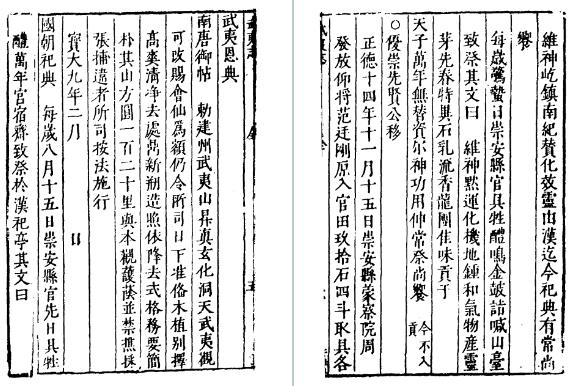 武夷恩典
南唐御帖　勅建州武夷山昇真玄化洞天武夷觀
可改賜會仙爲額仍令所司日下准俻木植別擇
高爽清净去處剙新翻造照依降去式格務要簡
朴其山方圓一百二十里與本觀護蔭並禁樵採
張捕違者所司按法施行
寶大九年二月　　日
國朝祀典　每歲八月十五日崇安縣官先日具牲
醴萬年宮宿齊致祭於漢祀亭其文曰
維神屹鎮南紀賛化效靈由漢迄今祀典有常尚
饗
每歲驚蟄日崇安縣官具牲醴鳴金皷詣喊山臺
致祭其文曰　維神黙運化機地鍾和氣物産靈
芽先春特異石乳流香龍團佳味貢于
天子萬年無替資尔神功用伸常祭尚饗　今不入貢
○優崇先賢公移
正德十四年十一月十五日崇安縣蒙察院周
發放仰将范廷剛原入官田玖拾石四斗取具各